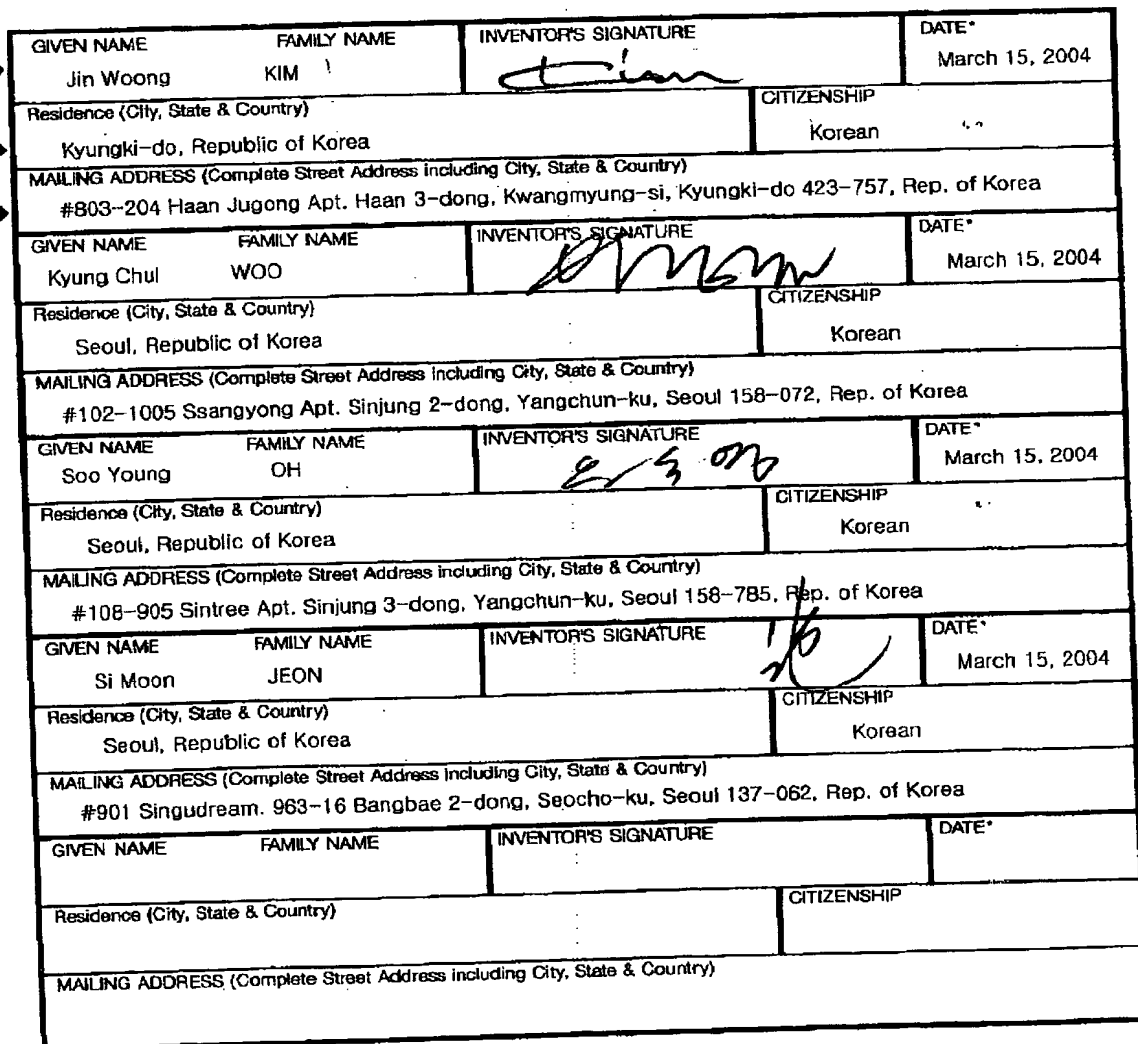 GIVEN NAME FAMILY NAME INVENTOR'S SIGNATURE DATE*
Jin Woong KIM March 15, 2004
Residence (City, State & Country) CITIZENSHIP
Kyungki-do, Republic of Korea Korean
MAILING ADDRESS (Complete Street Address including City, State & Country)
#803-204 Haan Jugong Apt. Haan 3-dong, Kwangmyung-si, Kyungki-do 423-757, Rep. of Korea
GIVEN NAME FAMILY NAME INVENTOR'S SIGNATURE DATE*
Kyung Chul WOO March 15, 2004
Residence (City, State & Country) CITIZENSHIP
Seoul, Republic of Korea Korean
MAILING ADDRESS (Complete Street Address including City, State & Country)
#102-1005 Ssangyong Apt. Sinjung 2-dong, Yangchun-ku, Seoul 158-072, Rep. of Korea
GIVEN NAME FAMILY NAME INVENTOR'S SIGNATURE DATE*
Soo Young OH March 15, 2004
Residence (City, State & Country) CITIZENSHIP
Seoul, Republic of Korea Korean
MAILING ADDRESS (Complete Street Address including City, State & Country)
#108-905 Sintree Apt. Sinjung 3-dong, Yangchun-ku, Seoul 158-785, Rep. of Korea
GIVEN NAME FAMILY NAME INVENTOR'S SIGNATURE DATE*
Si Moon JEON March 15, 2004
Residence (City, State & Country) CITIZENSHIP
Seoul, Republic of Korea Korean
MAILING ADDRESS (Complete Street Address including City, State & Country)
#901 Singudream. 963-16 Bangbae 2-dong, Seocho-ku, Seoul 137-062, Rep. of Korea
GIVEN NAME FAMILY NAME INVENTOR'S SIGNATURE DATE*
Residence (City, State & Country) CITIZENSHIP
MAILING ADDRESS (Complete Street Address including City, State & Country)